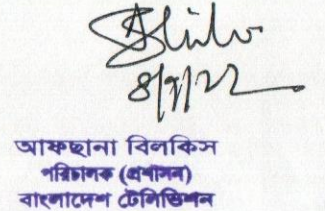 ৪/৭/২২
আফছানা বিলকিস
পরিচালক (প্রশাসন)
বাংলাদেশ টেলিভিশন